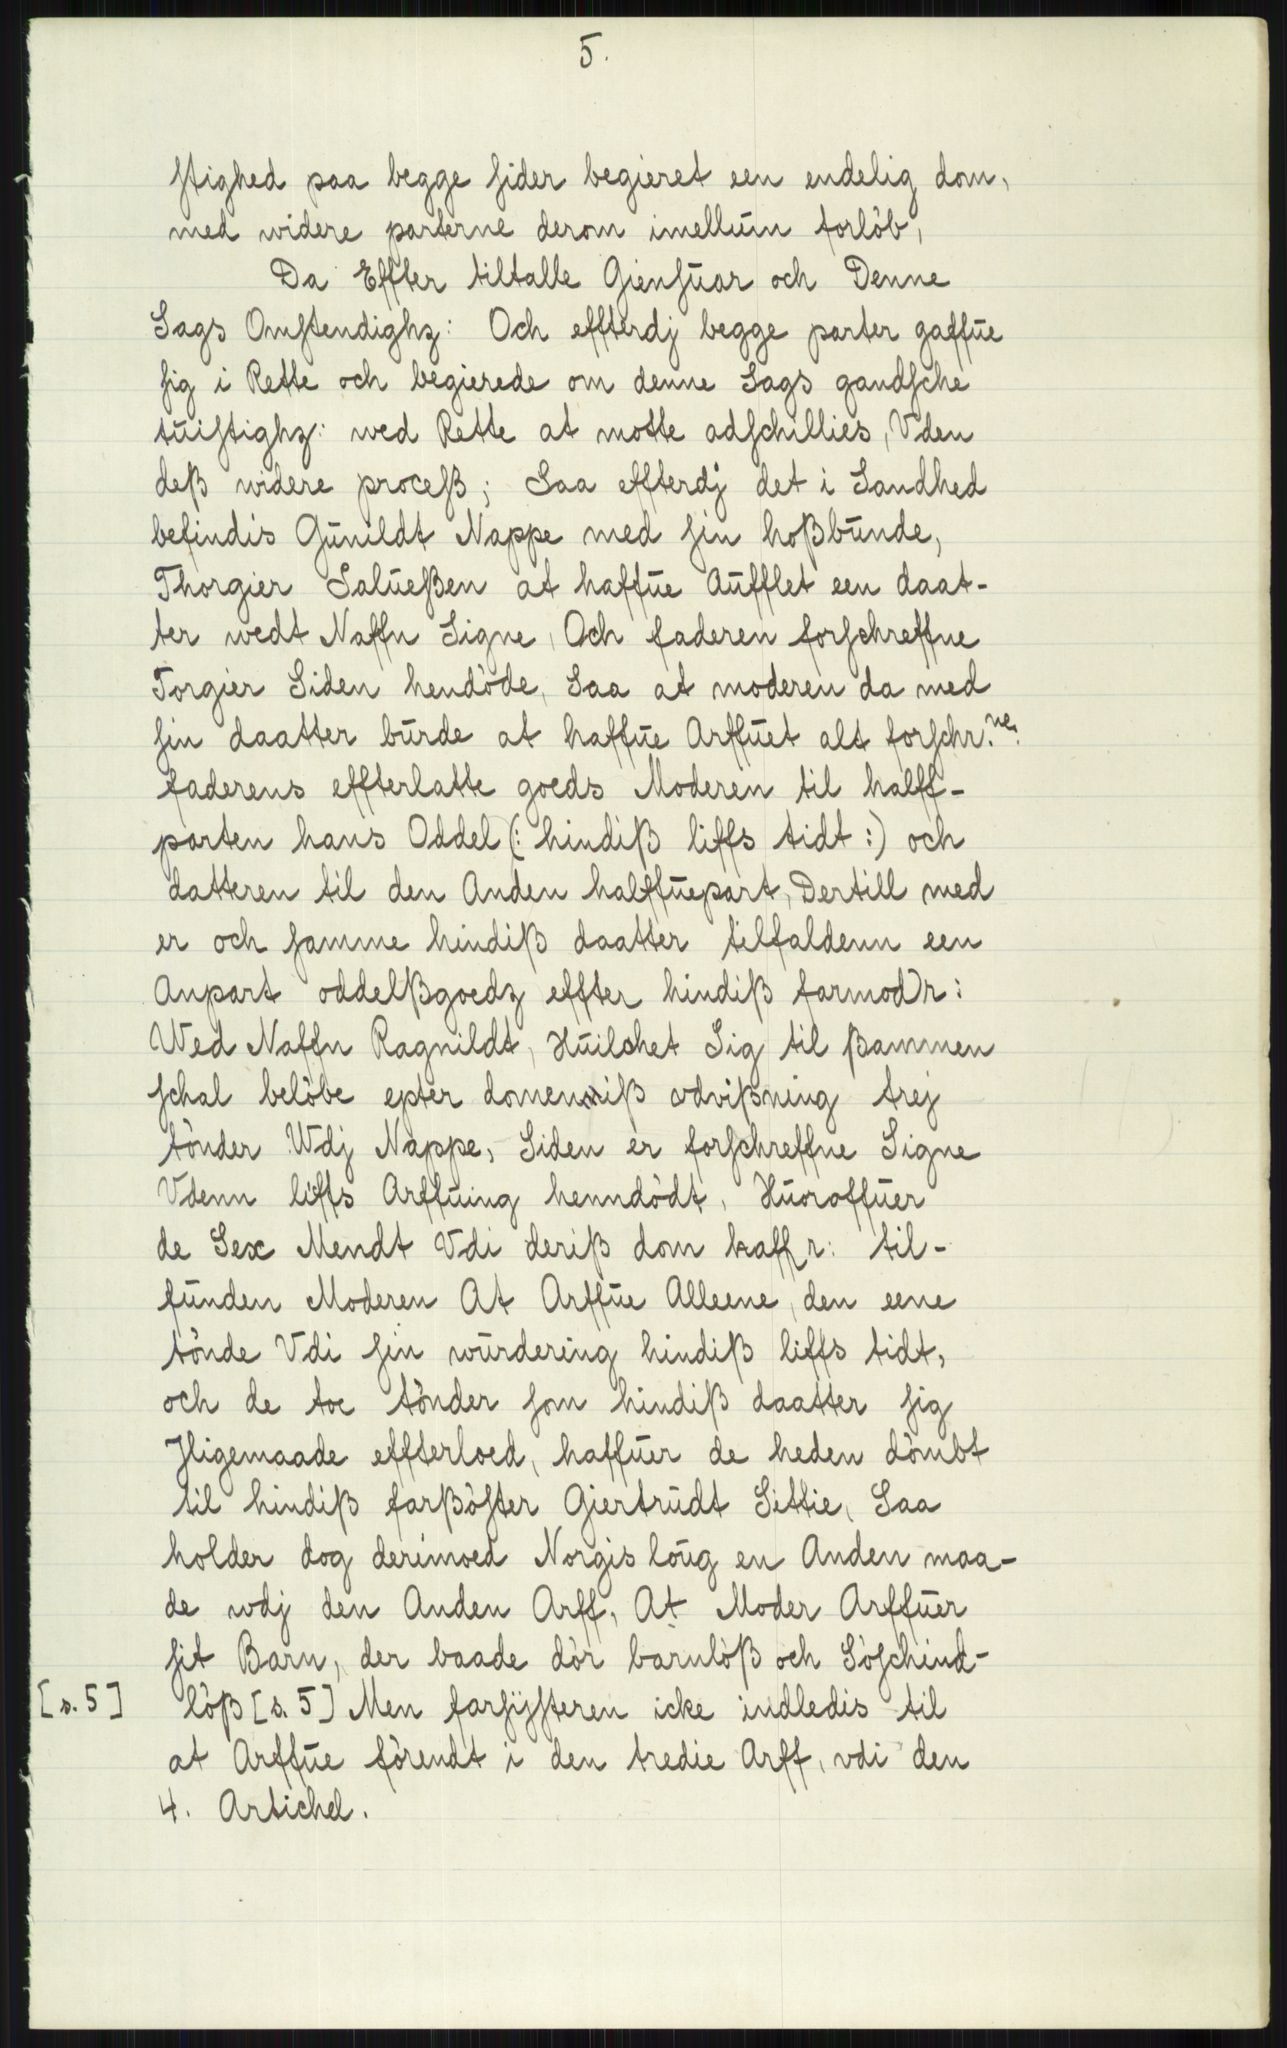 5.
ſtighed paa begge ſider begieret een endelig dom,
med widere parterne derom imellum forlòb,
Da Effter tiltalle Gienſuar och Denne
Sags Omſtendighz: Och effterdj begge parter gaffue
ſig i Rette och begierede om denne Sags gandſche
tuiſtighz: wed Rette at motte adſchillies, Vden
deß widere proceß; Saa effterdj det i Sandhed
befindis Gunildt Nappe med ſin hoßbunde,
Thorgier Salueßen at haffue Aufflet een daat-
ter wedt Naffn Signe, Och faderen forſchreffne
Torgier Siden hendòde, Saa at moderen da med
ſin daatter burde at haffue Arffuet alt forſchr.ne.
faderens effterlatte goeds Moderen til halff-
parten hans Oddel (: hindiß liffs tidt :) och
datteren til den Anden halffuepart, Dertill med
er och ſamme hindiß daatter tilfaldenn een
Anpart oddelßgoedz effter hindiß farmodr:
Wed Naffn Ragnildt, Huilchet Sig til ßammen
ſchal belòbe epter domenniß vdvißning trej
tònder Wdj Nappe, Siden er forſchreffne Signe
Vdenn liffs Arffuing henndòdt, Huoroffuer
de Sex Mendt Vdi deriß dom haffr: til-
funden Moderen At Arffue Alleene, den eene
tònde Vdi ſin wurdering hindiß liffs tidt,
och de toe tònder ſom hindiß daatter ſig
Jligemaade effterloed, haffuer de heden dòmbt
til hindiß farßòſter Giertrudt Sittie, Saa
holder dog derimoed Norgis loug en Anden maa-
de wdj den Anden Arff, At Moder Arffuer
ſit Barn, der baade dòr barnlòß och Sòſchind-
[s. 5] lòß [s. 5] Men farſyſteren icke indledis til
at Arffue fòrendt i den tredie Arff, vdi den
4. Artichel.